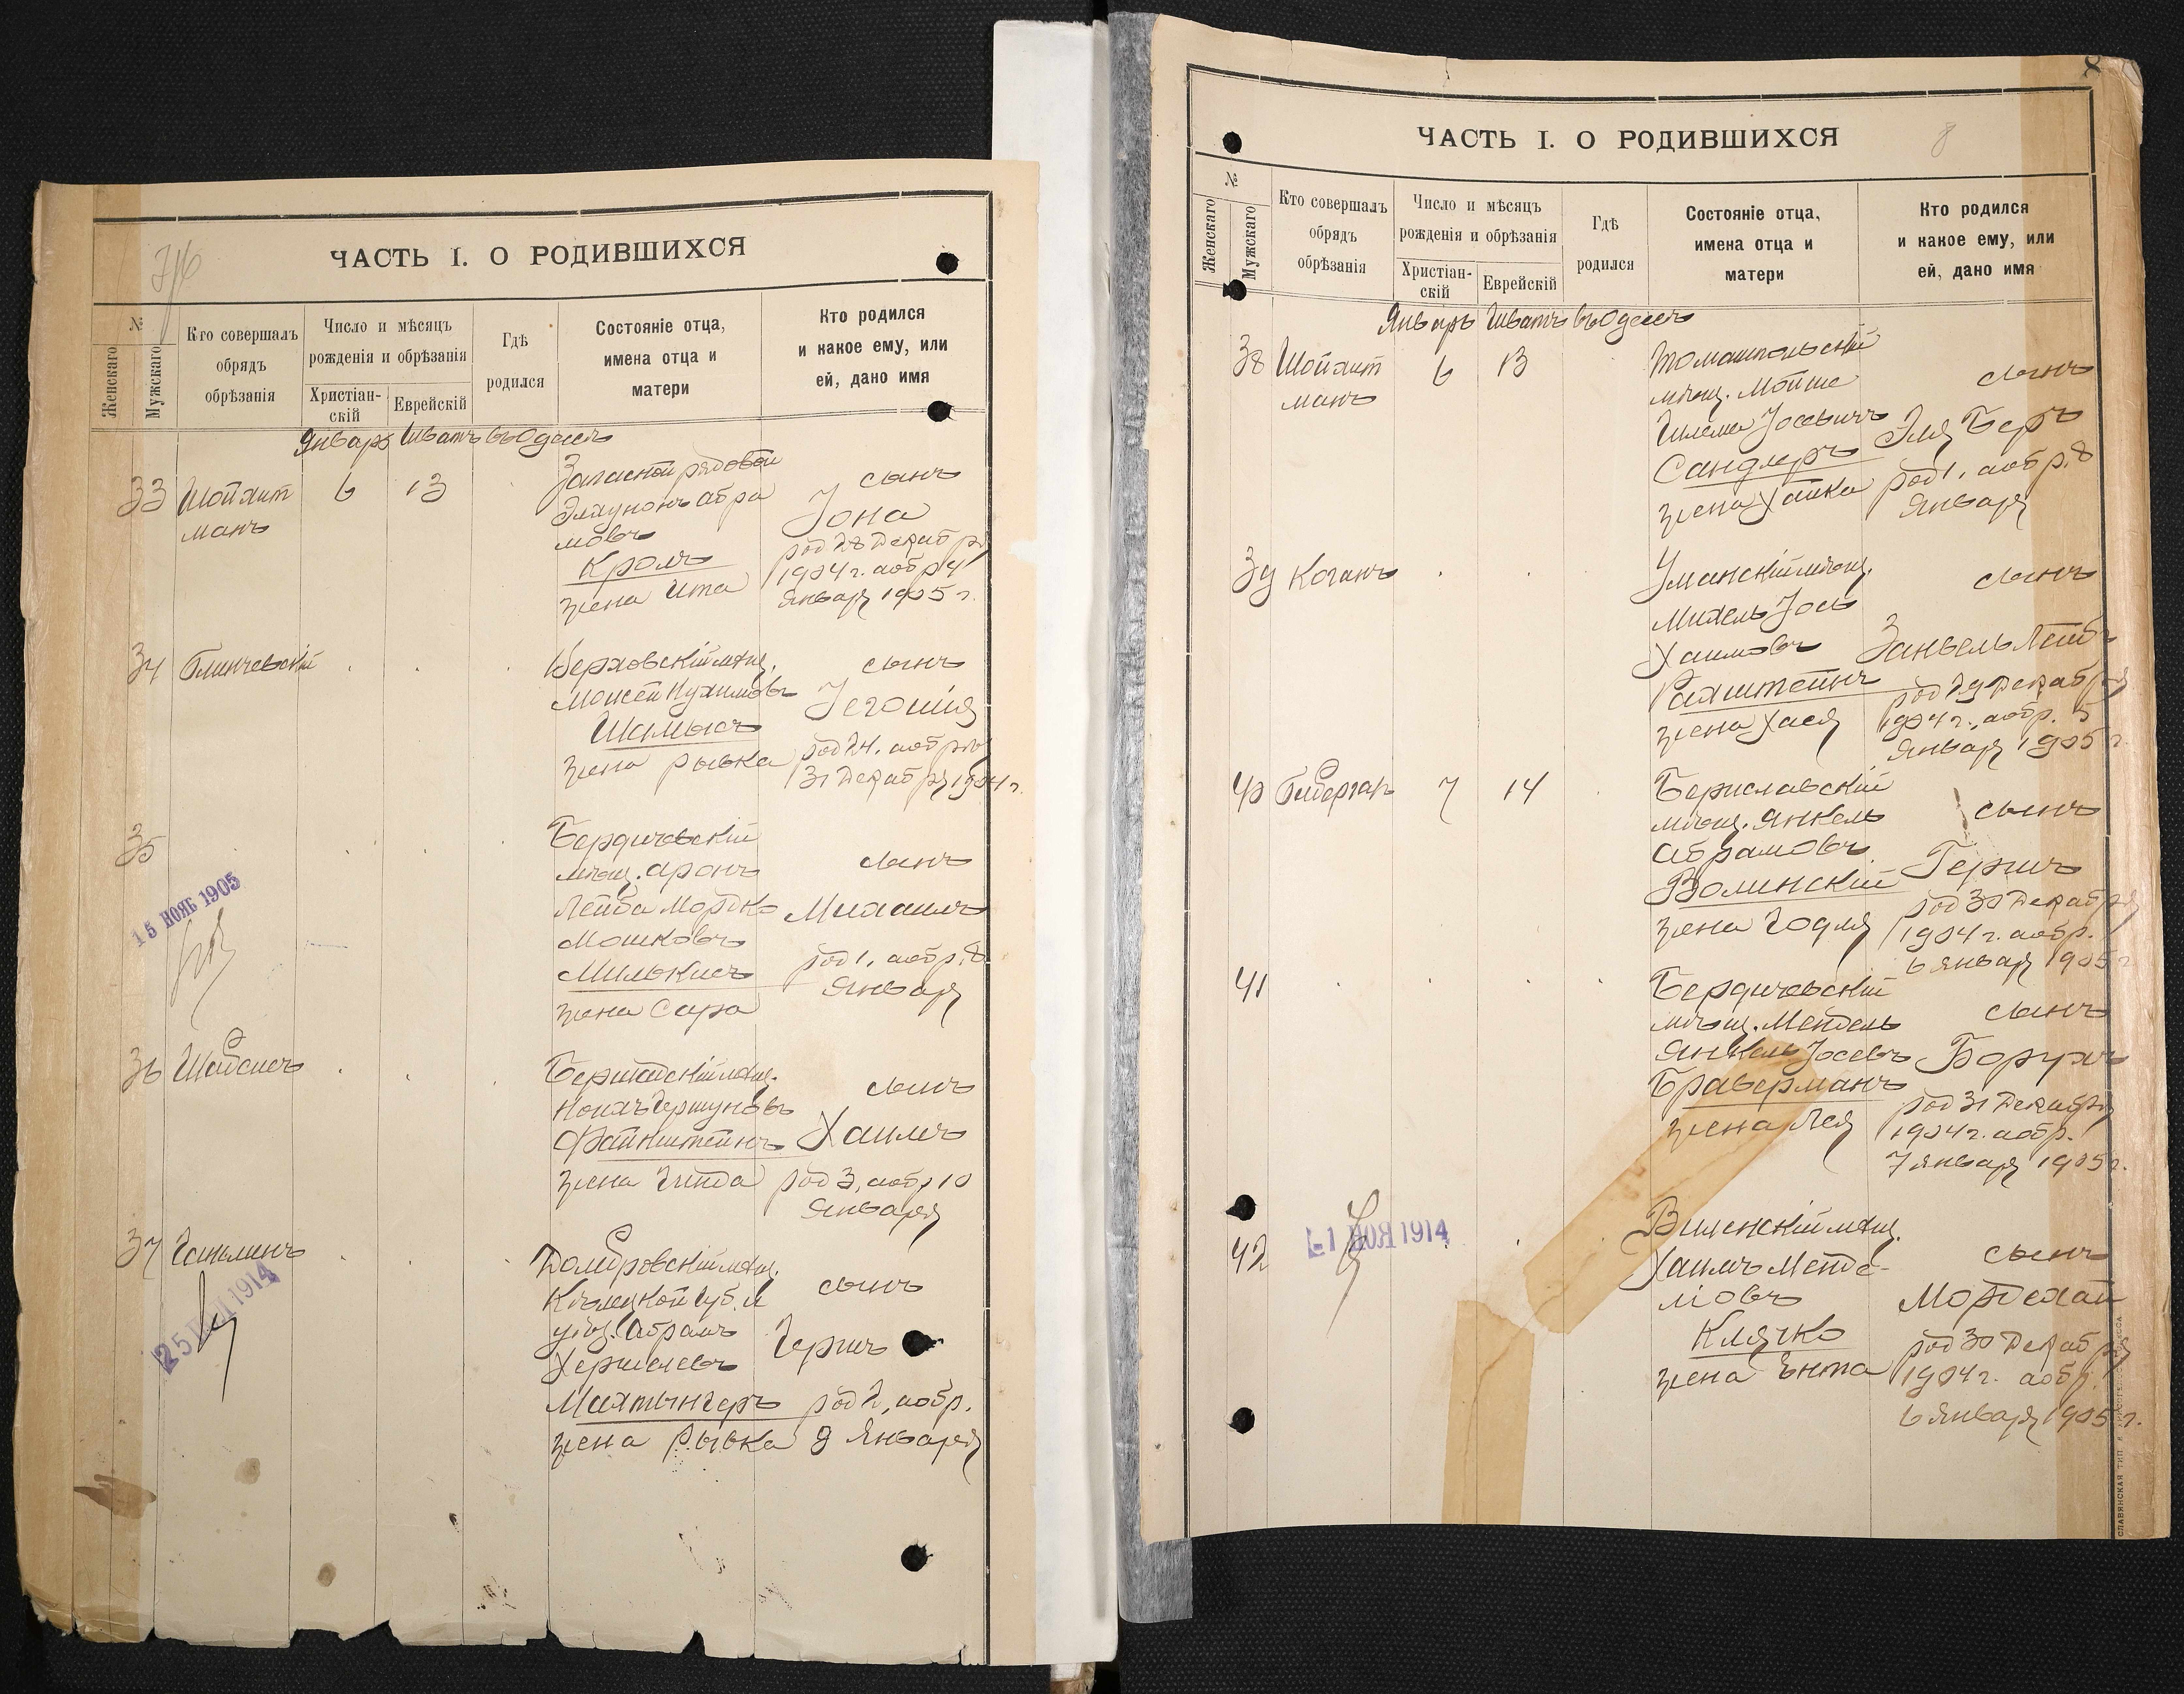 ЧАСТЬ I. О РОДИВШИХСЯ
№
Женскаго
Мужскаго
Кто совершалъ
обрядъ
обрѣзанія
Число и мѣсяцъ
рожденія и обрѣзанія
Христіан-
скій
Еврейскій
Гдѣ
родился
Состояніе отца,
имена отца и
матери
Кто родился
и какое ему, или
ей, дано имя
Январь Шватъ въ Одессѣ
33 Шойхит
манъ
6 13
Запасной рядовой
Элхунонъ Абра
мовъ
Кролъ
жена Ита
сынъ
Іона
род 28 Декабря
1904 г. а обр 4
Января 1905 г.
34
Верховскій мѣщ.
Моисей Нухимовъ
Шамысъ
жена Рывка
сынъ
Іегошія
род 24, а обр
31 Декабря 1904 г.
35
15 НОЯБ 1905
Бердичевскій
мѣщ. Аронъ
Лейба Мордко
Мошковъ
Милькисъ
жена Сура
сынъ
Михаилъ
род 1, а обр. 8
Января
36
мѣщ.
Файнштейнъ
жена Гинда
сынъ
Хаимъ
род 3, а обр 10
Января
37
25 1914
Домбровскій мѣщ.
Кѣлецкой Губ. и
уѣз. Абрамъ
Хершелевъ
Махтынгеръ
жена Рывка
сынъ
Гершъ
род 2, а обр.
9 Января
8
ЧАСТЬ I. О РОДИВШИХСЯ
8
№
Женскаго
Мужскаго
Кто совершалъ
обрядъ
обрѣзанія
Число и мѣсяцъ
рожденія и обрѣзанія
Христіан-
скій
Еврейскій
Гдѣ
родился
Состояніе отца,
имена отца и
матери
Кто родился
и какое ему, или
ей, дано имя
Январь Шватъ въ Одессѣ
38 Шойхит
манъ
6 13
Томашпольскій
мѣщ. Мойше
Шлема Іосевичъ
Сандлеръ
жена Хайка
сынъ
Эля Беръ
род 1, а обр. 8
Января
39 Коганъ
Уманскій мѣщ.
Михель Іось
Хаимовъ
Рахштейнъ
жена Хася
сынъ
Занвель Лейб
род 29 Декабря
1904 г., а обр. 5
Января 1905 г.
40
7 14
Бериславскій
мѣщ. Янкель
Абрамовъ
Волинскій
жена Годля
сынъ
Гершъ
род 30 Декабря
1904 г. а обр.
6 Января 1905 г
41
Бердичевскій
мѣщ. Мендель
Янкель Іосевъ
Браверманъ
жена Лея
сынъ
Борухъ
род 31 Декабря
1904 г. а обр.
7 Января 1905 г.
42
1 НОЯ 1914
Виленскій мѣщ.
Хаимъ Менде-
левъ
Клячко
жена Ента
сынъ
Мордехай
род 30 Декабря
1904 г. а обр.
6 Января 1905 г.